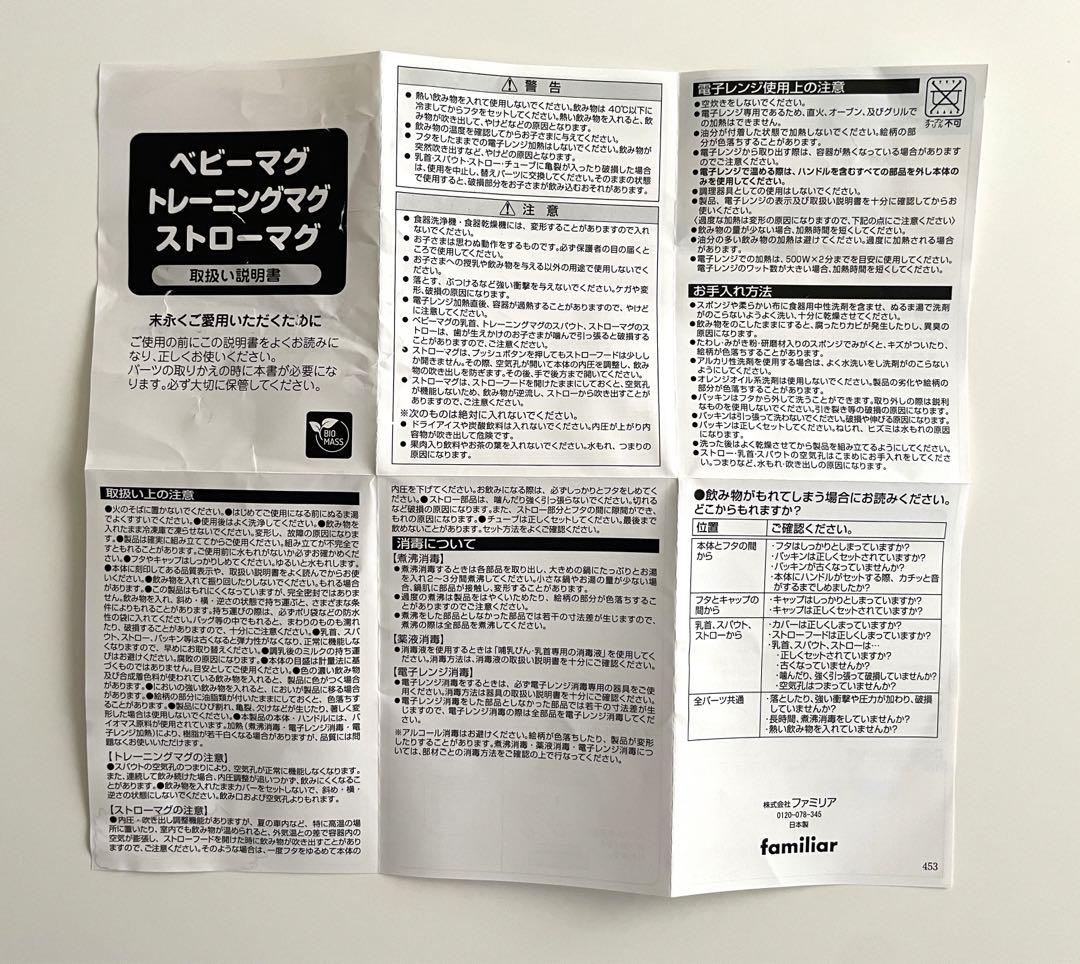 ベビーマグ
トレーニングマグ
ストローマグ
取扱い説明書
末永くご愛用いただくために
ご使用の前にこの説明書をよくお読みに
なり、正しくお使いください。
パーツの取りかえの時に本書が必要にな
ります。必ず大切に保管してください。
BIO
MASS
警告
●熱い飲み物を入れて使用しないでください。飲み物は 40℃以下に
冷ましてからフタをセットしてください。熱い飲み物を入れると、飲
み物が吹き出して、やけどなどの原因となります。
●飲み物の温度を確認してからお子さまに与えてください。
●フタをしたままでの電子レンジ加熱はしないでください。飲み物が
突然吹き出すなど、やけどの原因となります。
●乳首・スパウト・ストロー・チューブに亀裂が入ったり破損した場合
は、使用を中止し、替えパーツに交換してください。そのままの状態
で使用すると、破損部分をお子さまが飲み込むおそれがあります。
注意
●食器洗浄機・食器乾燥機には、変形することがありますので入れ
ないでください。
●お子さまは思わぬ動作をするものです。必ず保護者の目の届くと
ころで使用してください。
●お子さまへの授乳や飲み物を与える以外の用途で使用しないでく
ださい。
●落とす、ぶつけるなど強い衝撃を与えないでください。ケガや変
形、破損の原因になります。
●電子レンジ加熱直後、容器が過熱することがありますので、やけど
に注意してください。
●ベビーマグの乳首、トレーニングマグのスパウト、ストローマグのス
トローは、歯が生えかけのお子さまが噛んで引っ張ると破損するこ
とがあります。
●ストローマグは、プッシュボタンを押してもストローフードは少ししか開きません。その際、空気孔が開いて本体の内圧を調整し、飲み
物の吹き出しを防ぎます。その後、手で後方まで開いてください。
●ストローマグは、ストローフードを開けたままにしておくと、空気孔
が機能しないため、飲み物が逆流し、ストローから吹き出すことが
ありますので、ご注意ください。
※次のものは絶対に入れないでください。
●ドライアイスや炭酸飲料は入れないでください。内圧が上がり内
容物が吹き出して危険です。
●果肉入り飲料やお茶の葉を入れないでください。水もれ、つまりの
原因になります。
電子レンジ使用上の注意
不可
●空炊きをしないでください。
●電子レンジ専用であるため、直火、オーブン、及びグリルで
の加熱はできません。
●油分が付着した状態で加熱しないでください。絵柄の部
分が色落ちすることがあります。
●電子レンジから取り出す際は、容器が熱くなっている場合があります
のでご注意ください。
●電子レンジで温める際は、ハンドルを含むすべての部品を外し本体の
みを使用してください。
●調理器具としての使用はしないでください。
●製品、電子レンジの表示及び取扱い説明書を十分に確認してからお
使いください。
〈過度な加熱は変形の原因になりますので、下記の点にご注意ください〉
●飲み物の量が少ない場合、加熱時間を短くしてください。
●油分の多い飲み物の加熱は避けてください。過度に加熱される場合
があります。
●電子レンジでの加熱は、500W×2分までを目安に使用してください。
電子レンジのワット数が大きい場合、加熱時間を短くしてください。
お手入れ方法
●スポンジや柔らかい布に食器用中性洗剤を含ませ、ぬるま湯で洗剤
がのこらないようよく洗い、十分に乾燥させてください。
●飲み物をのこしたままにすると、腐ったりカビが発生したりし、異臭の
原因になります。
●たわし・みがき粉・研磨材入りのスポンジでみがくと、キズがついたり、
絵柄が色落ちすることがあります。
●アルカリ性洗剤を使用する場合は、よく水洗いをし洗剤がのこらない
ようにしてください。
●オレンジオイル系洗剤は使用しないでください。製品の劣化や絵柄の
部分が色落ちすることがあります。
●パッキンはフタから外して洗うことができます。取り外しの際は鋭利
なものを使用しないでください。引き裂き等の破損の原因になります。
●パッキンは引っ張って洗わないでください。破損や伸びる原因になります。
●パッキンは正しくセットしてください。ねじれ、ヒズミは水もれの原因
になります。
●洗った後はよく乾燥させてから製品を組み立てるようにしてください。
●ストロー・乳首・スパウトの空気孔はこまめにお手入れをしてくださ
い。つまりなど、水もれ・吹き出しの原因になります。
取扱い上の注意
●火のそばに置かないでください。●はじめてご使用になる前にぬるま湯
でよくすすいでください。●使用後はよく洗浄してください。●飲み物を
入れたまま冷凍庫で凍らせないでください。変形し、故障の原因になりま
す。●製品は確実に組み立ててからご使用ください。組み立てが不完全で
すともれることがあります。ご使用前に水もれがないか必ずお確かめくだ
さい。●フタやキャップはしっかりしめてください。ゆるいと水もれします。
●本体に刻印してある品質表示や、取扱い説明書をよく読んでからお使
いください。●飲み物を入れて振り回したりしないでください。もれる場合
があります。●この製品はもれにくくなっていますが、完全密封ではありま
せん。飲み物を入れ、斜め・横・逆さの状態で持ち運ぶと、さまざまな条
件によりもれることがあります。持ち運びの際は、必ずポリ袋などの防水
性の袋に入れてください。バッグ等の中でもれると、まわりのものも濡れ
たり、破損することがありますので、十分にご注意ください。●乳首、スパ
ウト、ストロー、パッキン等は古くなると弾力性がなくなり、正常に機能しな
くなりますので、早めにお取替えください。●調乳後のミルクの持ち運
びはお避けください。腐敗の原因になります。●本体の目盛は計量法に基
づくものではありません。目安としてご使用ください。●色の濃い飲み物
及び合成着色料が使われている飲み物を入れると、製品に色がつく場合が
あります。●においの強い飲み物を入れると、においが製品に移る場合
があります。●絵柄の部分に油脂類が付いたままにしておくと、色落ちする
ことがあります。●製品にひび割れ、亀裂、欠けなどが生じたり、著しく変
形した場合は使用しないでください。●本製品の本体・ハンドルには、バ
イオマス原料が使用されています。加熱（煮沸消毒・電子レンジ消毒・電
子レンジ加熱）により、樹脂が若干白くなる場合がありますが、品質には問
題なくお使いいただけます。
【トレーニングマグの注意】
●スパウトの空気孔のつまりにより、空気孔が正常に機能しなくなります。
また、連続して飲み続けた場合、内圧調整が追いつかず、飲みにくくなるこ
とがあります。●飲み物を入れたままカバーをセットしないで、斜め・横・
逆さの状態にしないでください。飲み口および空気孔よりもれます。
【ストローマグの注意】
●内圧・吹き出し調整機能がありますが、夏の車内など、特に高温の場
所に置いたり、室内でも飲み物が温められると、外気温との差で容器内の
空気が膨張し、ストローフードを開けた時に飲み物が吹き出すことがあり
ますので、ご注意ください。そのような場合は、一度フタをゆるめて本体の
内圧を下げてください。お飲みになる際は、必ずしっかりとフタをしめてく
ださい。●ストロー部品は、噛んだり強く引っ張らないでください。切れる
など破損の原因になります。また、ストロー部分とフタの間に隙間ができ、
もれの原因になります。●チューブは正しくセットしてください。最後まで
飲めないことがあります。セット方法をよくご確認ください。
消毒について
【煮沸消毒】
●煮沸消毒をするときは各部品を取り出し、大きめの鍋にたっぷりとお湯
を入れ2〜3分間煮沸してください。小さな鍋やお湯の量が少ない場
合、鍋肌に部品が接触し、変形することがあります。
●過度の煮沸は製品をはやくいためたり、絵柄の部分が色落ちするこ
とがありますのでご注意ください。
●煮沸をした部品としなかった部品では若干の寸法差が生じますので、
煮沸の際は全部品を煮沸してください。
【薬液消毒】
●消毒液を使用するときは「哺乳びん・乳首専用の消毒液」を使用してく
ださい。消毒方法は、消毒液の取扱い説明書を十分にご確認ください。
【電子レンジ消毒】
●電子レンジ消毒をするときは、必ず電子レンジ消毒専用の器具をご使
用ください。消毒方法は器具の取扱い説明書を十分にご確認ください。
●電子レンジ消毒をした部品としなかった部品では若干の寸法差が生
じますので、電子レンジ消毒の際は全部品を電子レンジ消毒してくだ
さい。
※アルコール消毒はお避けください。絵柄が色落ちしたり、製品が変形
したりすることがあります。煮沸消毒・薬液消毒・電子レンジ消毒につ
いては、部材ごとの消毒方法をご確認の上で行なってください。
●飲み物がもれてしまう場合にお読みください。
どこからもれますか？
位置 ご確認ください。
本体とフタの間から ・フタはしっかりとしまっていますか？
・パッキンは正しくセットされていますか？
・パッキンが古くなっていませんか？
・本体にハンドルがセットする際、カチッと音
がするまでしめましたか？
フタとキャップの間から ・キャップはしっかりとしまっていますか？
・キャップは正しくセットされていますか？
乳首、スパウト、ストローから ・カバーは正しくしまっていますか？
・ストローフードは正しくしまっていますか？
・乳首、スパウト、ストローは…
・正しくセットされていますか？
・古くなっていませんか？
・噛んだり、強く引っ張って破損していませんか？
・空気孔はつまっていませんか？
全パーツ共通 ・落としたり、強い衝撃や圧力が加わり、破損
していませんか？
・長時間、煮沸消毒をしていませんか？
・熱い飲み物を入れていませんか？
株式会社ファミリア
0120-078-345
日本製
familiar
453